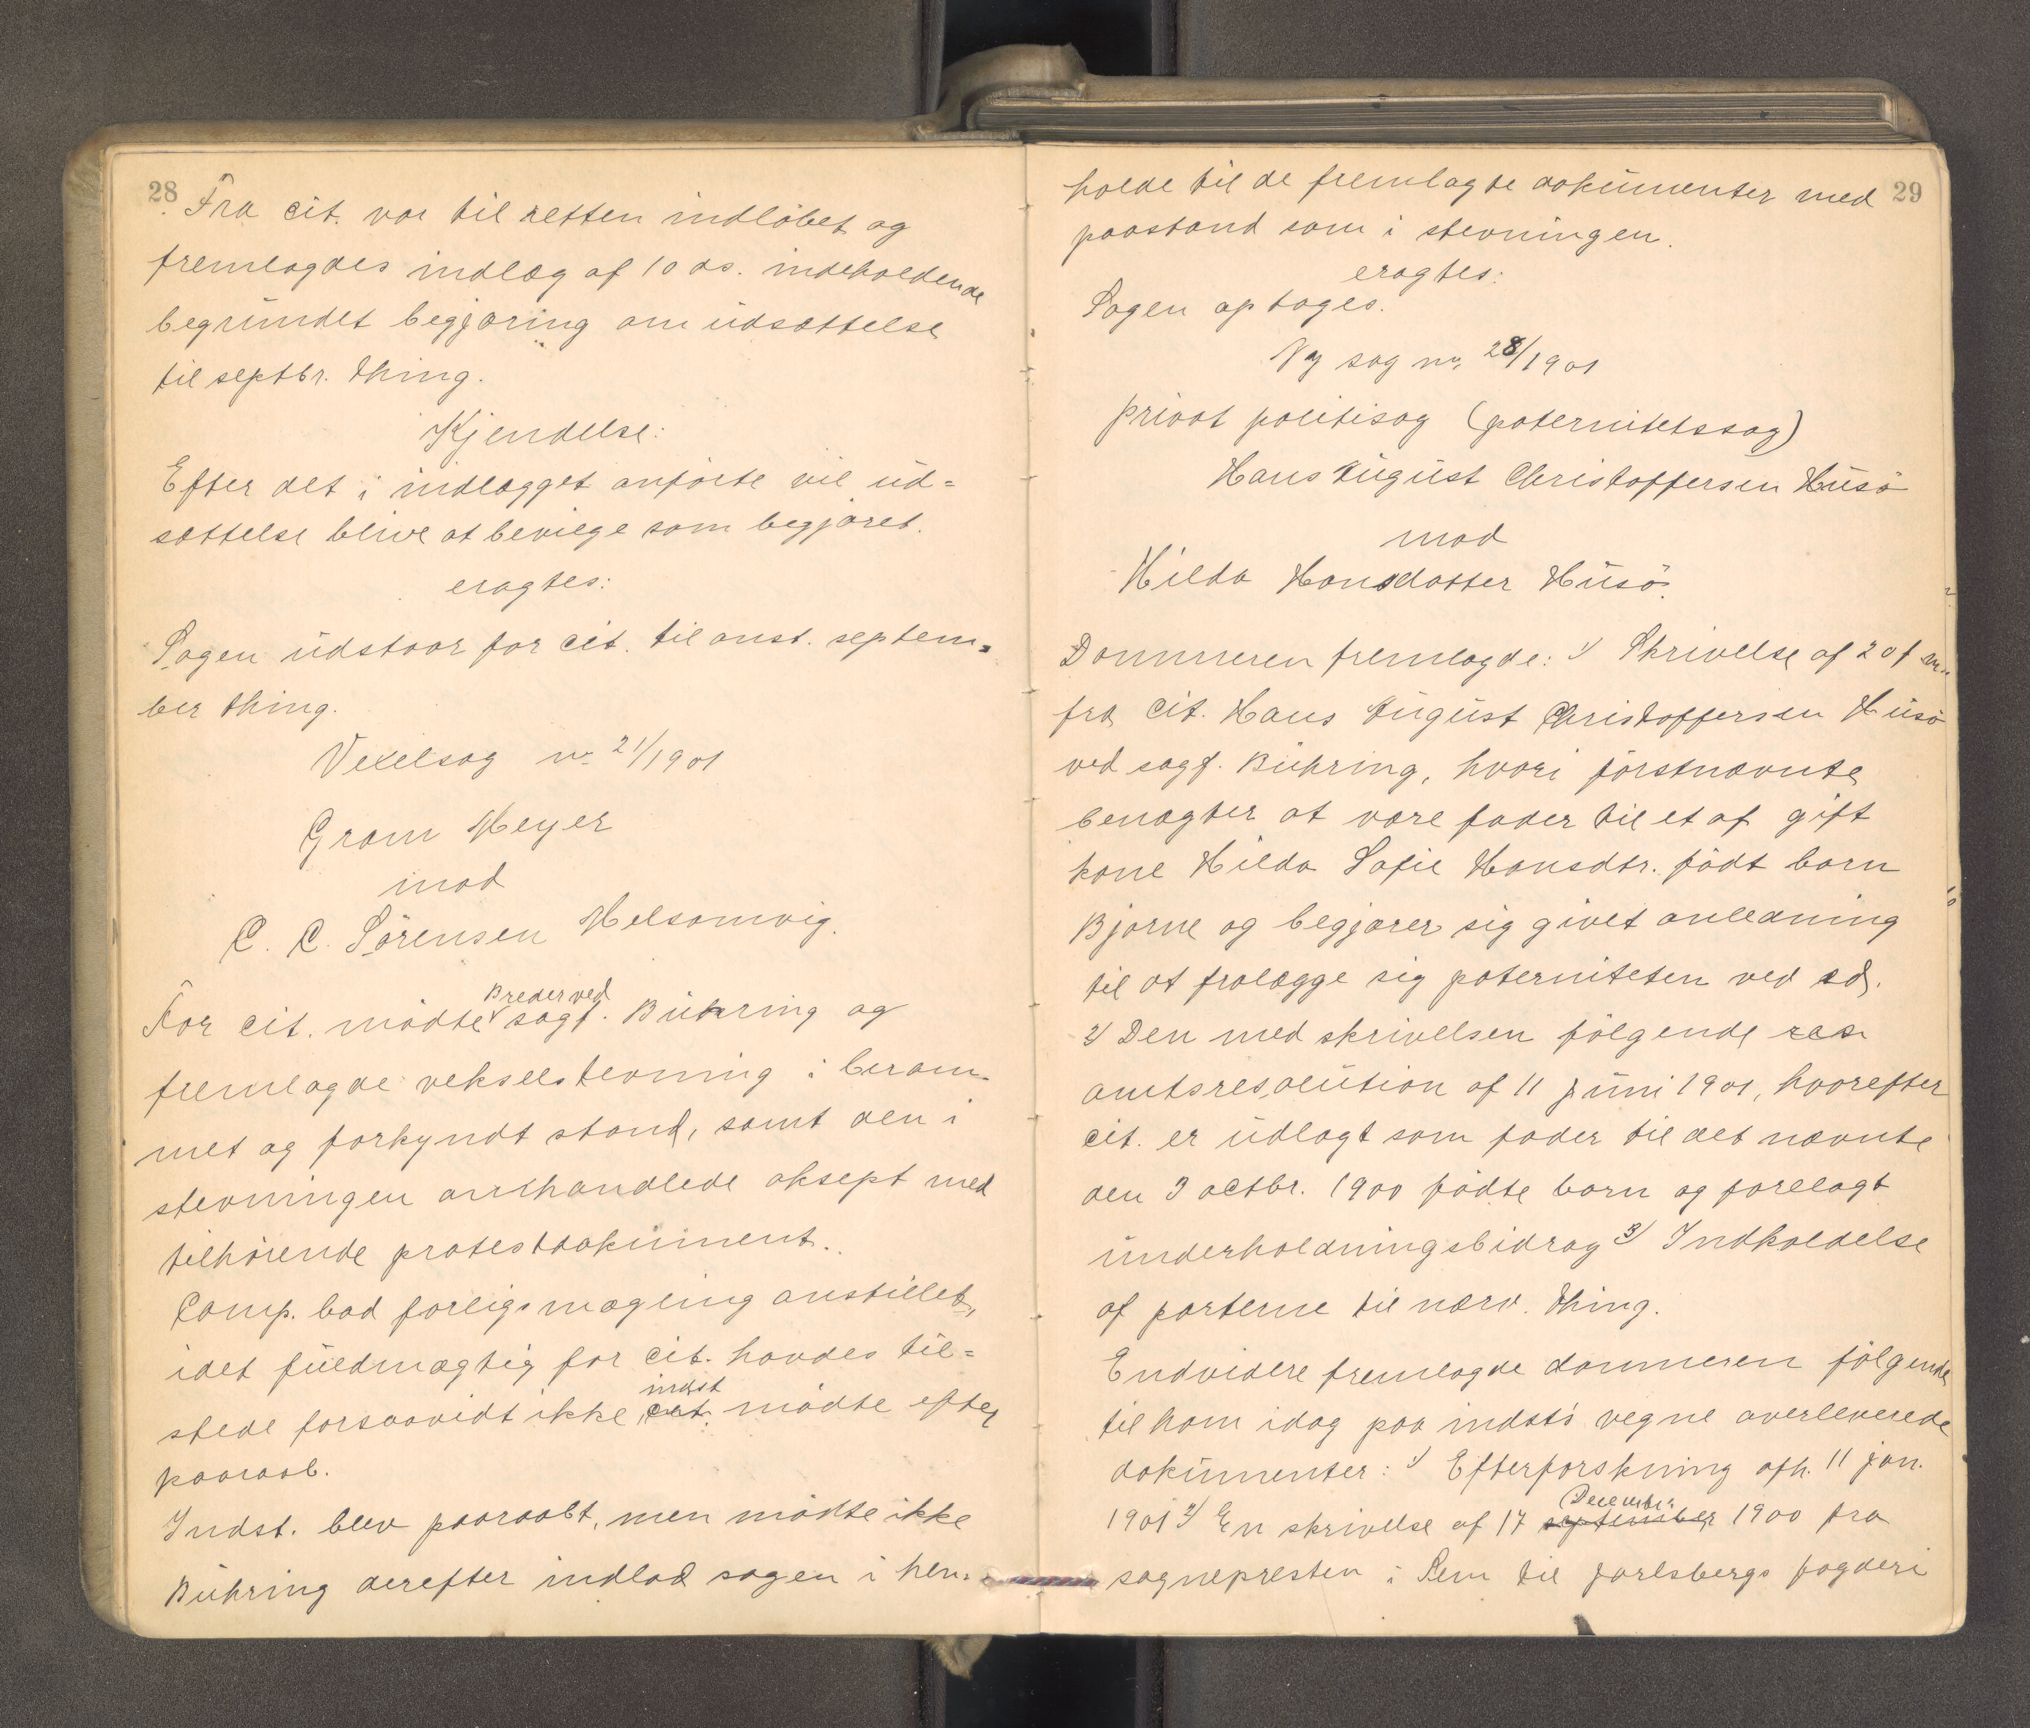 28
Fra cit. var til retten indløbet og
fremlagdes indlæg af 10 ds. indeholdende
begrundet begjæring om udsættelse
til septbr. thing.
Kjendelse:
Efter det i indlægget anførte vil ud=
sættelse blive at bevilge som begjæret.
eragtes:
Sagen udstaar for cit. til anst. septem=
ber thing.
Vexelsag no 21/1901
Gram Meyer
mod
C. C. Sørensen Melsomvig.
For cit. mødte Breder ved sagf. Bühring og
fremlagde vekselstevning i beram-
met og forkyndt stand, samt den i
stevningen omhandlede aksept med
tilhørende protestdokument.
Comp. bad forligsmægling anstillet,
idet fuldmægtig for cit. havdes til=
stede forsaavidt ikke cit. indst mødte efter
paaraab.
Indst. blev paaraabt, men mødte ikke
Bühring derefter indlod sagen i hen-
29
holde til de fremlagte dokumenter med
paastand som i stevningen.
eragtes:
Sagen optages.
Ny sag no. 28/1901
privat politisag (paternitetssag)
Hans August Christoffersen Husø
mod
Hilda Hansdatter Husø.
Dommeren fremlagde: 1) Skrivelse af 20 f.
fra cit. Hans August Christoffersen Husø
ved sagf. Bühring, hvori førstnævnte
benægter at være fader til et af gift
kone Hilda Sofie Hansdtr. født barn
Bjarne og begjærer sig givet anledning
til at fralægge sig paterniteten ved ed.
2) Den med skrivelsen følgende res
amtsresolution af 11 juni 1901, hvorefter
cit. er udlagt som fader til det nævnte
den 3 octbr. 1900 fødte barn og forelagt
underholdningsbidrag 3) Indkaldelse
af parterne til nærv. thing.
Endvidere fremlagde dommeren følgende
til ham idag paa indst's vegne overleverede
dokumenter: 1) Efterforskning afh. 11 jan.
1901 2) En skrivelse af 17 september December 1900 fra
sognepresten i Sem til Jarlsbergs fogderi